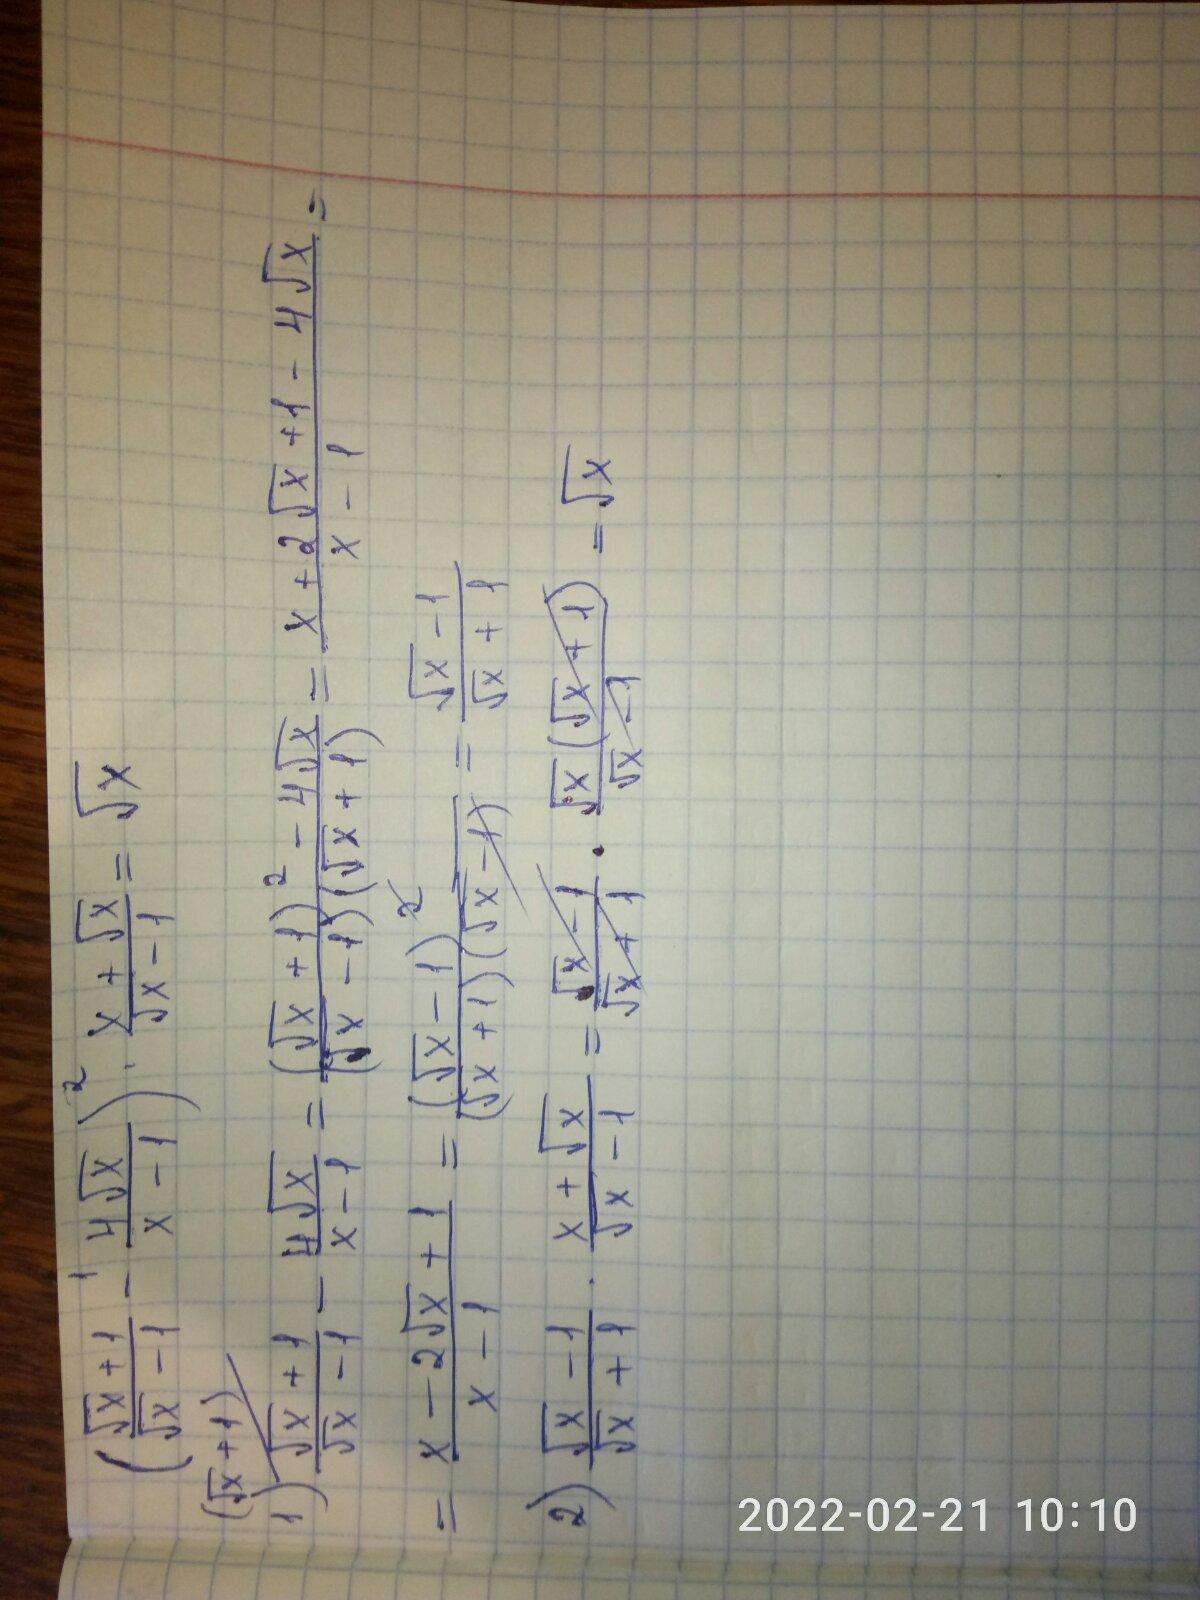 ((√x+1)/(√x-1) - (4√x)/(x-1))² · (x+√x)/(√x-1) = √x
(√x+1)
1) (√x+1)/(√x-1) - (4√x)/(x-1) = ((√x+1)² - 4√x)/((√x-1)(√x+1)) = (x+2√x+1-4√x)/(x-1) =
= (x-2√x+1)/(x-1) = (√x-1)²/((√x+1)(√x-1)) = (√x-1)/(√x+1)
2) (√x-1)/(√x+1) · (x+√x)/(√x-1) = (√x-1)/(√x+1) · (√x(√x+1))/(√x-1) = √x
2022-02-21 10:10